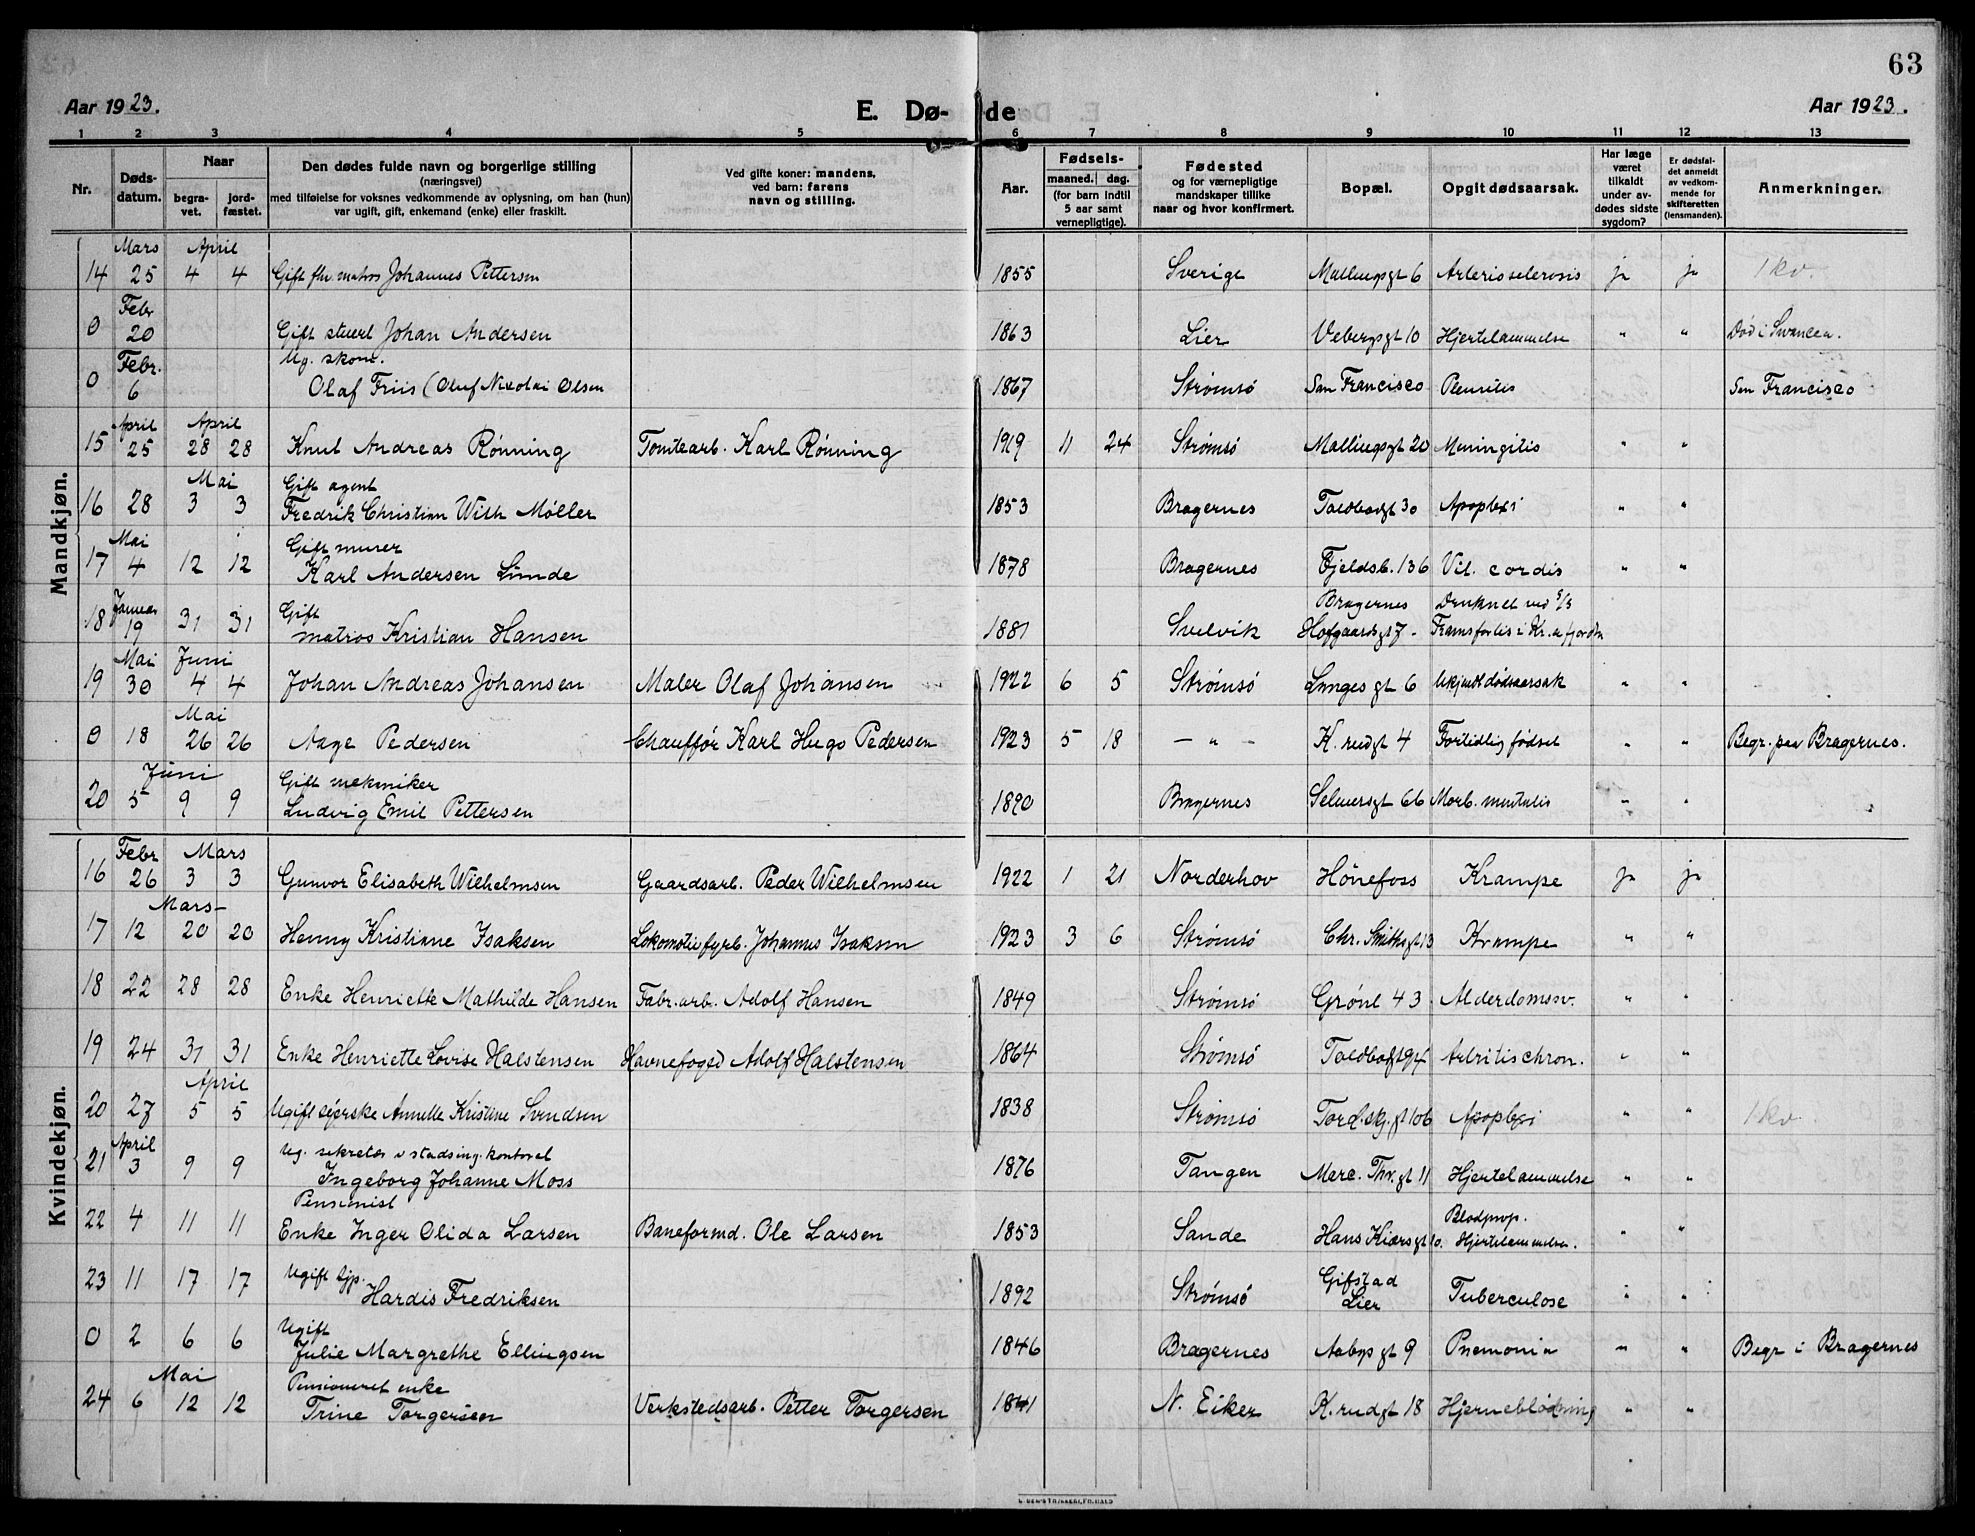 63
Aar 1923.
E. Dø-
de
Aar 1923.
1 2 3 4 5 6 7 8 9 10 11 12 13
Nr.
Dødsdatum.
Naar
begravet.
jordfæstet.
Den dødes fulde navn og borgerlige stilling
(næringsvei)
med tilføielse for voksnes vedkommende av oplysning, om han (hun)
var ugift, gift, enkemand (enke) eller fraskilt.
Ved gifte koner: mandens,
ved barn: farens
navn og stilling.
Aar.
Fødsels-
maaned. dag.
(for barn indtil
5 aar samt
vernepligtige).
Fødested
og for værnepligtige
mandskaper tillike
naar og hvor konfirmert.
Bopæl.
Opgit dødsaarsak.
Har læge
været
tilkaldt
under av-
dødes sidste
sygdom?
Er dødsfal-
det anmeldt
av vedkom-
mende for
skifteretten
(lensmanden).
Anmerkninger.
Mandkjøn.
Mars April
14 25 4 4 Gift fhv matros Johannes Pettersen 1855 Sverige Mallingsgt 6 Arterissclerosis ja ja 1 kv.
Febr
0 20 Gift stuert Johan Andersen 1863 Lier Vebergsgt 10 Hjertelammelse " " Død i Swansea.
Febr. Ug. skom.
0 6 Olaf Friis (Oluf Nicolai Olsen 1867 Strømsø San Francisco " " San Francisco
April April
15 25 28 28 Knut Andreas Rønning Tomtearb. Karl Rønning 1919 11 24 Strømsø Mallingsgt 20 Meningitis " "
Mai Gift agent
16 28 3 3 Fredrik Christian With Møller 1853 Bragernes Toldbodgt 30 Apoplexi " "
Mai Gift murer
17 4 12 12 Karl Andersen Lunde 1878 Bragernes Fjeldsb. 136 Vit. cordis " "
Januar Gift Bragernes Druknet ved
18 19 31 31 matros Kristian Hansen 1881 Svelvik Hofgaardsgt 7 - i Kr.a fjorden
Mai Juni
19 30 4 4 Johan Andreas Johansen Maler Olaf Johansen 1922 6 5 Strømsø Langes gt 6 Ukjendt dødsaarsak " "
Mai
0 18 26 26 Aage Pedersen Chauffør Karl Hugo Pedersen 1923 5 18 - " - K. rudgt 4 Fortidlig fødsel " " Begr. paa Bragernes.
Juni Gift mekaniker
20 5 9 9 Ludvig Emil Pettersen 1890 Bragernes Selmersgt 66 Morb. mentalis " "
Kvindekjøn.
Febr Mars
16 26 3 3 Gunvor Elisabeth Wilhelmsen Gaardsarb. Peder Wilhelmsen 1922 1 21 Norderhov Hönefoss Krampe ja ja
Mars
17 12 20 20 Henny Kristiane Isaksen Lokomotivfyrb. Johannes Isaksen 1923 3 6 Strømsø Chr. Smithsgt 13 Krampe " "
18 22 28 28 Enke Henriette Mathilde Hansen Fabr. arb. Adolf Hansen 1849 Strømsø Grønl 43 Alderdomssv. " "
19 24 31 31 Enke Henriette Lovise Halstensen Havnefoged Adolf Halstensen 1864 Strømsø Artritis chron. " "
April
20 27 5 5 Ugift Annette Kristine Svendsen 1838 Strømsø Tord.skj.gt 106 Apoplexi " " 1 kv.
April Ug. sekretær v stadsing. kontoret
21 3 9 9 Ingeborg Johanne Moss 1876 Tangen Merc. Thr. gt 11 Hjertelammelse " "
Pensionist Blodprop.
22 4 11 11 Enke Inger Olida Larsen Baneformd. Ole Larsen 1853 Sande Hans Kiærsgt 10. Hjertelammelse. " "
Ugift tjp. Gifstad
23 11 17 17 Hardis Fredriksen 1892 Strømsø Lier Tuberculose " "
Ugift
0 2 6 6 Julie Margrethe Ellingsen 1846 Bragernes Aabys gt 9 Pnemonia " " Begr i Bragernes
Mai Pensioneret enke
24 6 12 12 Trine Torgersen Verkstedsarb. Petter Torgersen 1841 N. Eiker K. rudgt 18 Hjerneblødning " "